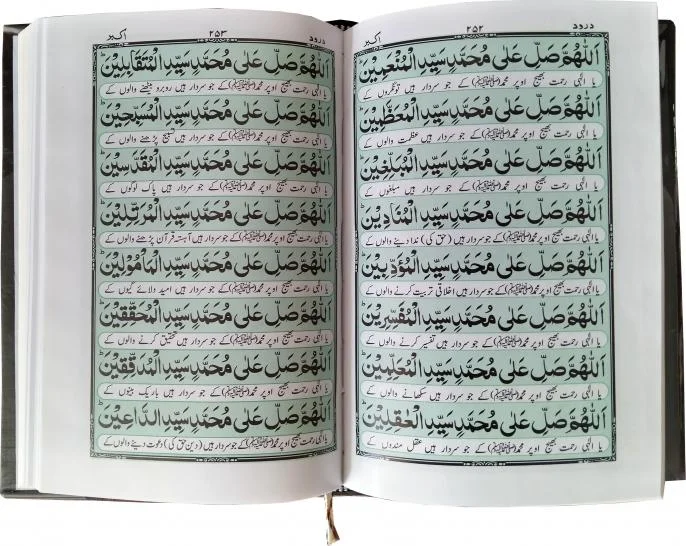 درود ۲۵۲ اکبر
اَللّٰهُمَّ صَلِّ عَلٰى مُحَمَّدٍ سَيِّدِ الْمُنْعَمِيْنَ
یا الٰہی رحمت بھیج اوپر محمد(ﷺ)کے جو سردار ہیں تونگروں کے
اَللّٰهُمَّ صَلِّ عَلٰى مُحَمَّدٍ سَيِّدِ الْمُعَظَّمِيْنَ
یا الٰہی رحمت بھیج اوپر محمد(ﷺ)کے جو سردار ہیں عظمت والوں کے
اَللّٰهُمَّ صَلِّ عَلٰى مُحَمَّدٍ سَيِّدِ الْمُبَلِّغِيْنَ
یا الٰہی رحمت بھیج اوپر محمد(ﷺ)کے جو سردار ہیں مبلغوں کے
اَللّٰهُمَّ صَلِّ عَلٰى مُحَمَّدٍ سَيِّدِ الْمُنَادِيْنَ
یا الٰہی رحمت بھیج اوپر محمد(ﷺ)کے جو سردار ہیں (حق کی) ندا دینے والوں کے
اَللّٰهُمَّ صَلِّ عَلٰى مُحَمَّدٍ سَيِّدِ الْمُؤَدِّبِيْنَ
یا الٰہی رحمت بھیج اوپر محمد(ﷺ)کے جو سردار ہیں اخلاقی تربیت کرنے والوں کے
اَللّٰهُمَّ صَلِّ عَلٰى مُحَمَّدٍ سَيِّدِ الْمُفَسِّرِيْنَ
یا الٰہی رحمت بھیج اوپر محمد(ﷺ)کے جو سردار ہیں تفسیر کرنے والوں کے
اَللّٰهُمَّ صَلِّ عَلٰى مُحَمَّدٍ سَيِّدِ الْمُعَلِّمِيْنَ
یا الٰہی رحمت بھیج اوپر محمد(ﷺ)کے جو سردار ہیں سکھانے والوں کے
اَللّٰهُمَّ صَلِّ عَلٰى مُحَمَّدٍ سَيِّدِ الْعَقِلِيْنَ
یا الٰہی رحمت بھیج اوپر محمد(ﷺ)کے جو سردار ہیں عقل مندوں کے
درود ۲۵۳ اکبر
اَللّٰهُمَّ صَلِّ عَلٰى مُحَمَّدٍ سَيِّدِ الْمُتَقَابِلِيْنَ
یا الٰہی رحمت بھیج اوپر محمد(ﷺ)کے جو سردار ہیں روبرو بیٹھنے والوں کے
اَللّٰهُمَّ صَلِّ عَلٰى مُحَمَّدٍ سَيِّدِ الْمُسَبِّحِيْنَ
یا الٰہی رحمت بھیج اوپر محمد(ﷺ)کے جو سردار ہیں تسبیح پڑھنے والوں کے
اَللّٰهُمَّ صَلِّ عَلٰى مُحَمَّدٍ سَيِّدِ الْمُقَدَّسِيْنَ
یا الٰہی رحمت بھیج اوپر محمد(ﷺ)کے جو سردار ہیں پاک لوگوں کے
اَللّٰهُمَّ صَلِّ عَلٰى مُحَمَّدٍ سَيِّدِ الْمُرَتِّلِيْنَ
یا الٰہی رحمت بھیج اوپر محمد(ﷺ)کے جو سردار ہیں آہستہ قرآن پڑھنے والوں کے
اَللّٰهُمَّ صَلِّ عَلٰى مُحَمَّدٍ سَيِّدِ الْمَامُوْلِيْنَ
یا الٰہی رحمت بھیج اوپر محمد(ﷺ)کے جو سردار ہیں امید دلائے گیوں کے
اَللّٰهُمَّ صَلِّ عَلٰى مُحَمَّدٍ سَيِّدِ الْمُحَقِّقِيْنَ
یا الٰہی رحمت بھیج اوپر محمد(ﷺ)کے جو سردار ہیں تحقیق کرنے والوں کے
اَللّٰهُمَّ صَلِّ عَلٰى مُحَمَّدٍ سَيِّدِ الْمُدَقِّقِيْنَ
یا الٰہی رحمت بھیج اوپر محمد(ﷺ)کے جو سردار ہیں باریک بینوں کے
اَللّٰهُمَّ صَلِّ عَلٰى مُحَمَّدٍ سَيِّدِ الدَّاعِيْنَ
یا الٰہی رحمت بھیج اوپر محمد(ﷺ)کے جو سردار ہیں (دین حق کی) دعوت دینے والوں کے